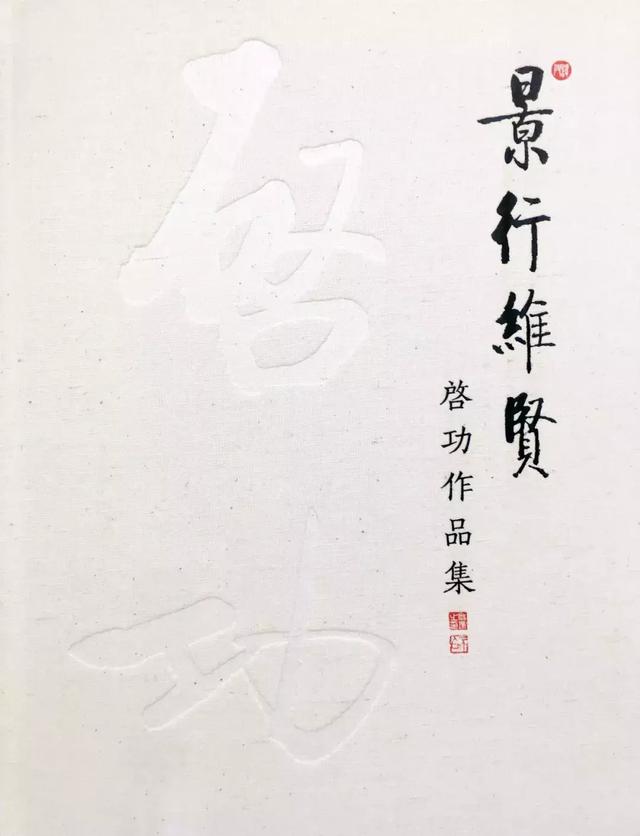 景行維賢
啓功作品集
啓功